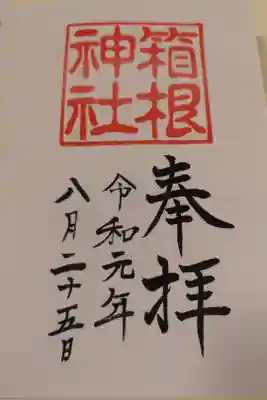 箱根
神社
奉拝
令和元年
八月二十五日